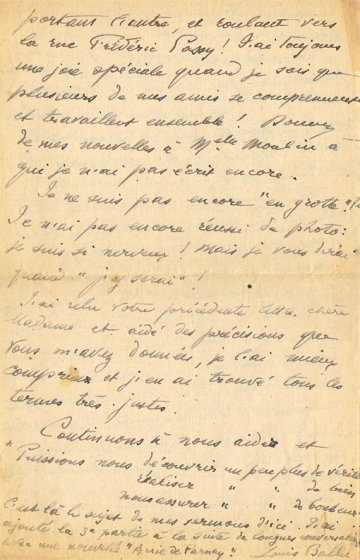 portant l'autre, et roulant vers
la rue Frédéric Passy ! J'ai toujours
une joie spéciale quand je sais que
plusieurs de mes amis se comprennent
et travaillent ensemble ! Donnez
de mes nouvelles à Melle Moulin à
qui je n'ai pas écrit encore.
Je ne suis pas encore "en grotte"
Je n'ai pas encore réussi de photo :
je suis si nerveux ! Mais je vous dirai
quand "j'y serai" !
J'ai relu votre précédente lettre, chère
Madame et aidé des précisions que
vous m'avez données, je l'ai mieux
comprise et j'en ai trouvé tous les
termes très justes.
Continuons à nous aider et
"Puissions nous découvrir un peu plus de vérité
réaliser " " de bien
nous assurer " " de bonheur
C'est là le sujet de mes sermons d'ici. J'ai
ajouté la 3e partie à la suite de longues conversations
avec une nommée
Louis